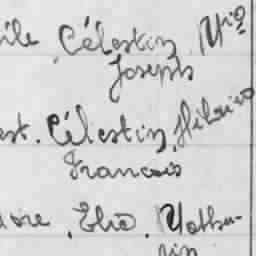 ile Célestin
Joseph
est. Célestin, Hilaire
Francois
oire, Elie. Mathu-
rin